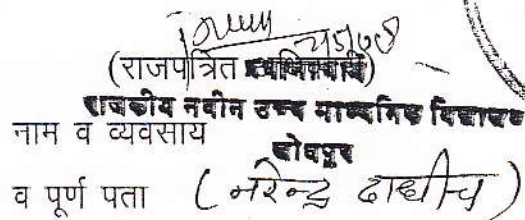 (राजपत्रित
राजकीय नवीन उच्च माध्यमिक विद्यालय
नाम व व्यवसाय
जोधपुर
व पूर्ण पता (नरेन्द्र दाधीच)